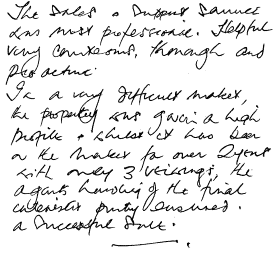 The Sales & Support Service
was most professional. Helpful
very courteous, thorough and
pro active.
In a very difficult market,
the property was given a high
profile & whilst it has been
on the market for over 2 years
with only 3 viewings, the
agents handling of the final
interested party ensured.
a successful Sale.